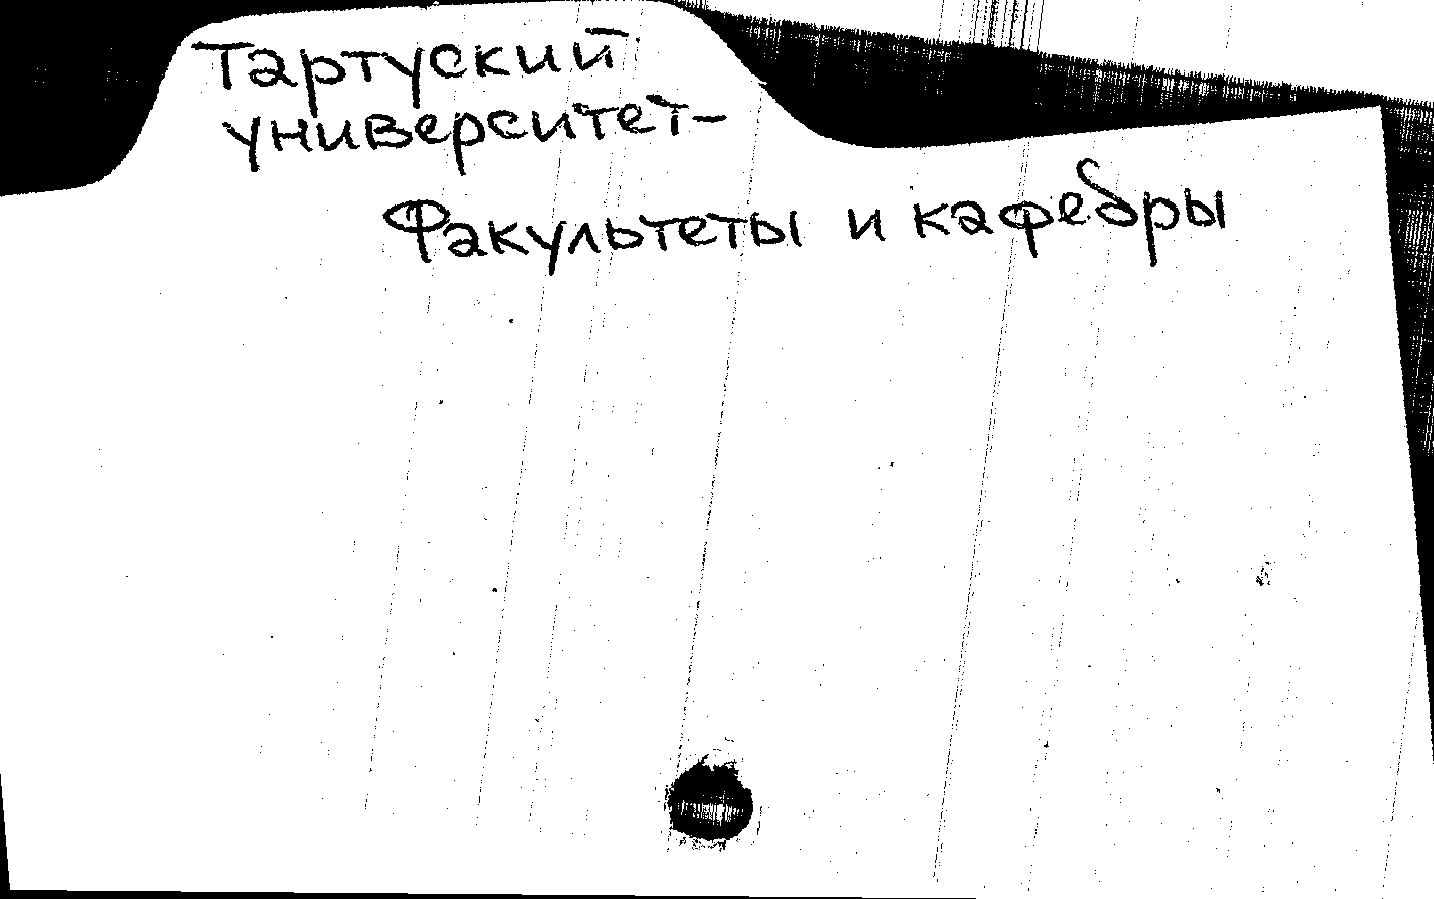 Тартуский
университет-
Факультеты и кафедры